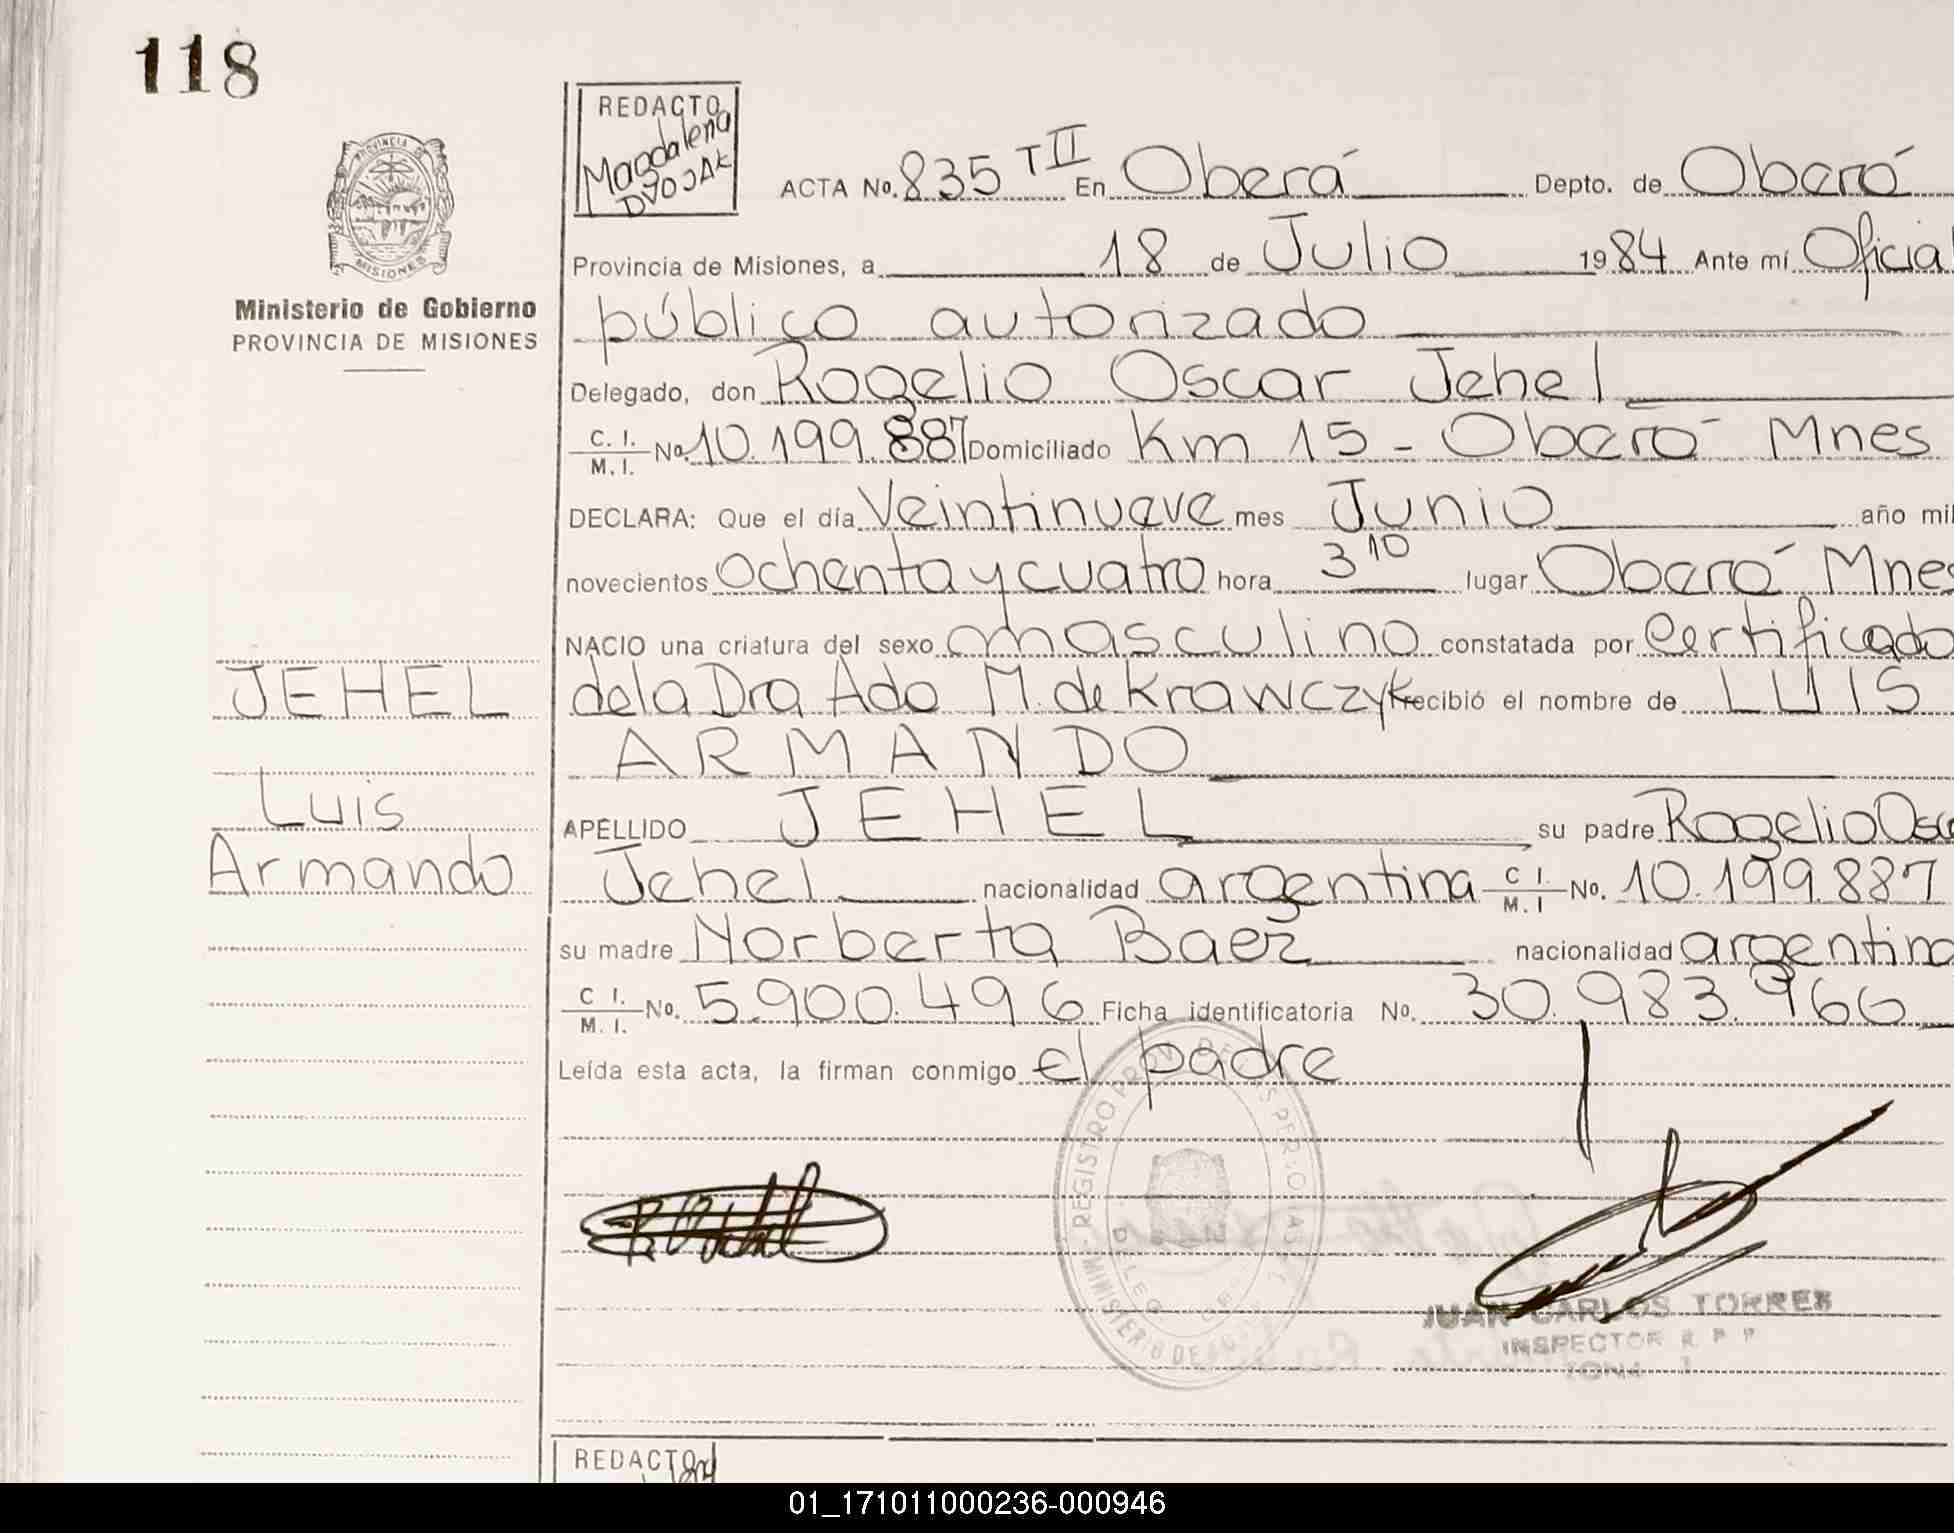 118
REDACTO
Magdalena
DVOJAK
ACTA No. 835 T II En Oberá Depto. de Oberá
Provincia de Misiones, a 18 de Julio 1984 Ante mí Oficial
público autorizado
Delegado, don Rogelio Oscar Jehel
C. I. / M. I. No. 10.199.887 Domiciliado Km 15 - Oberá Mnes
DECLARA: Que el día Veintinueve mes Junio año mil
novecientos Ochenta y cuatro hora 3 10 lugar Oberá Mnes
NACIO una criatura del sexo masculino constatada por Certificado
de la Dra Ada M. de Krawczyk recibió el nombre de LUIS
ARMANDO
APELLIDO JEHEL su padre Rogelio Osca
Jehel nacionalidad argentina C I. / M. I No. 10.199.887
su madre Norberta Baez nacionalidad argentina
C I. / M. I. No. 5.900.496 Ficha identificatoria No. 30.983.966
Leída esta acta, la firman conmigo el padre
PROVINCIA DE
MISIONES
Ministerio de Gobierno
PROVINCIA DE MISIONES
JEHEL
Luis
Armando
REGISTRO PROV. DE
MINISTERIO DE
JUAN CARLOS TORRES
INSPECTOR R. P. P
ZONA I
REDACTO
01_171011000236-000946